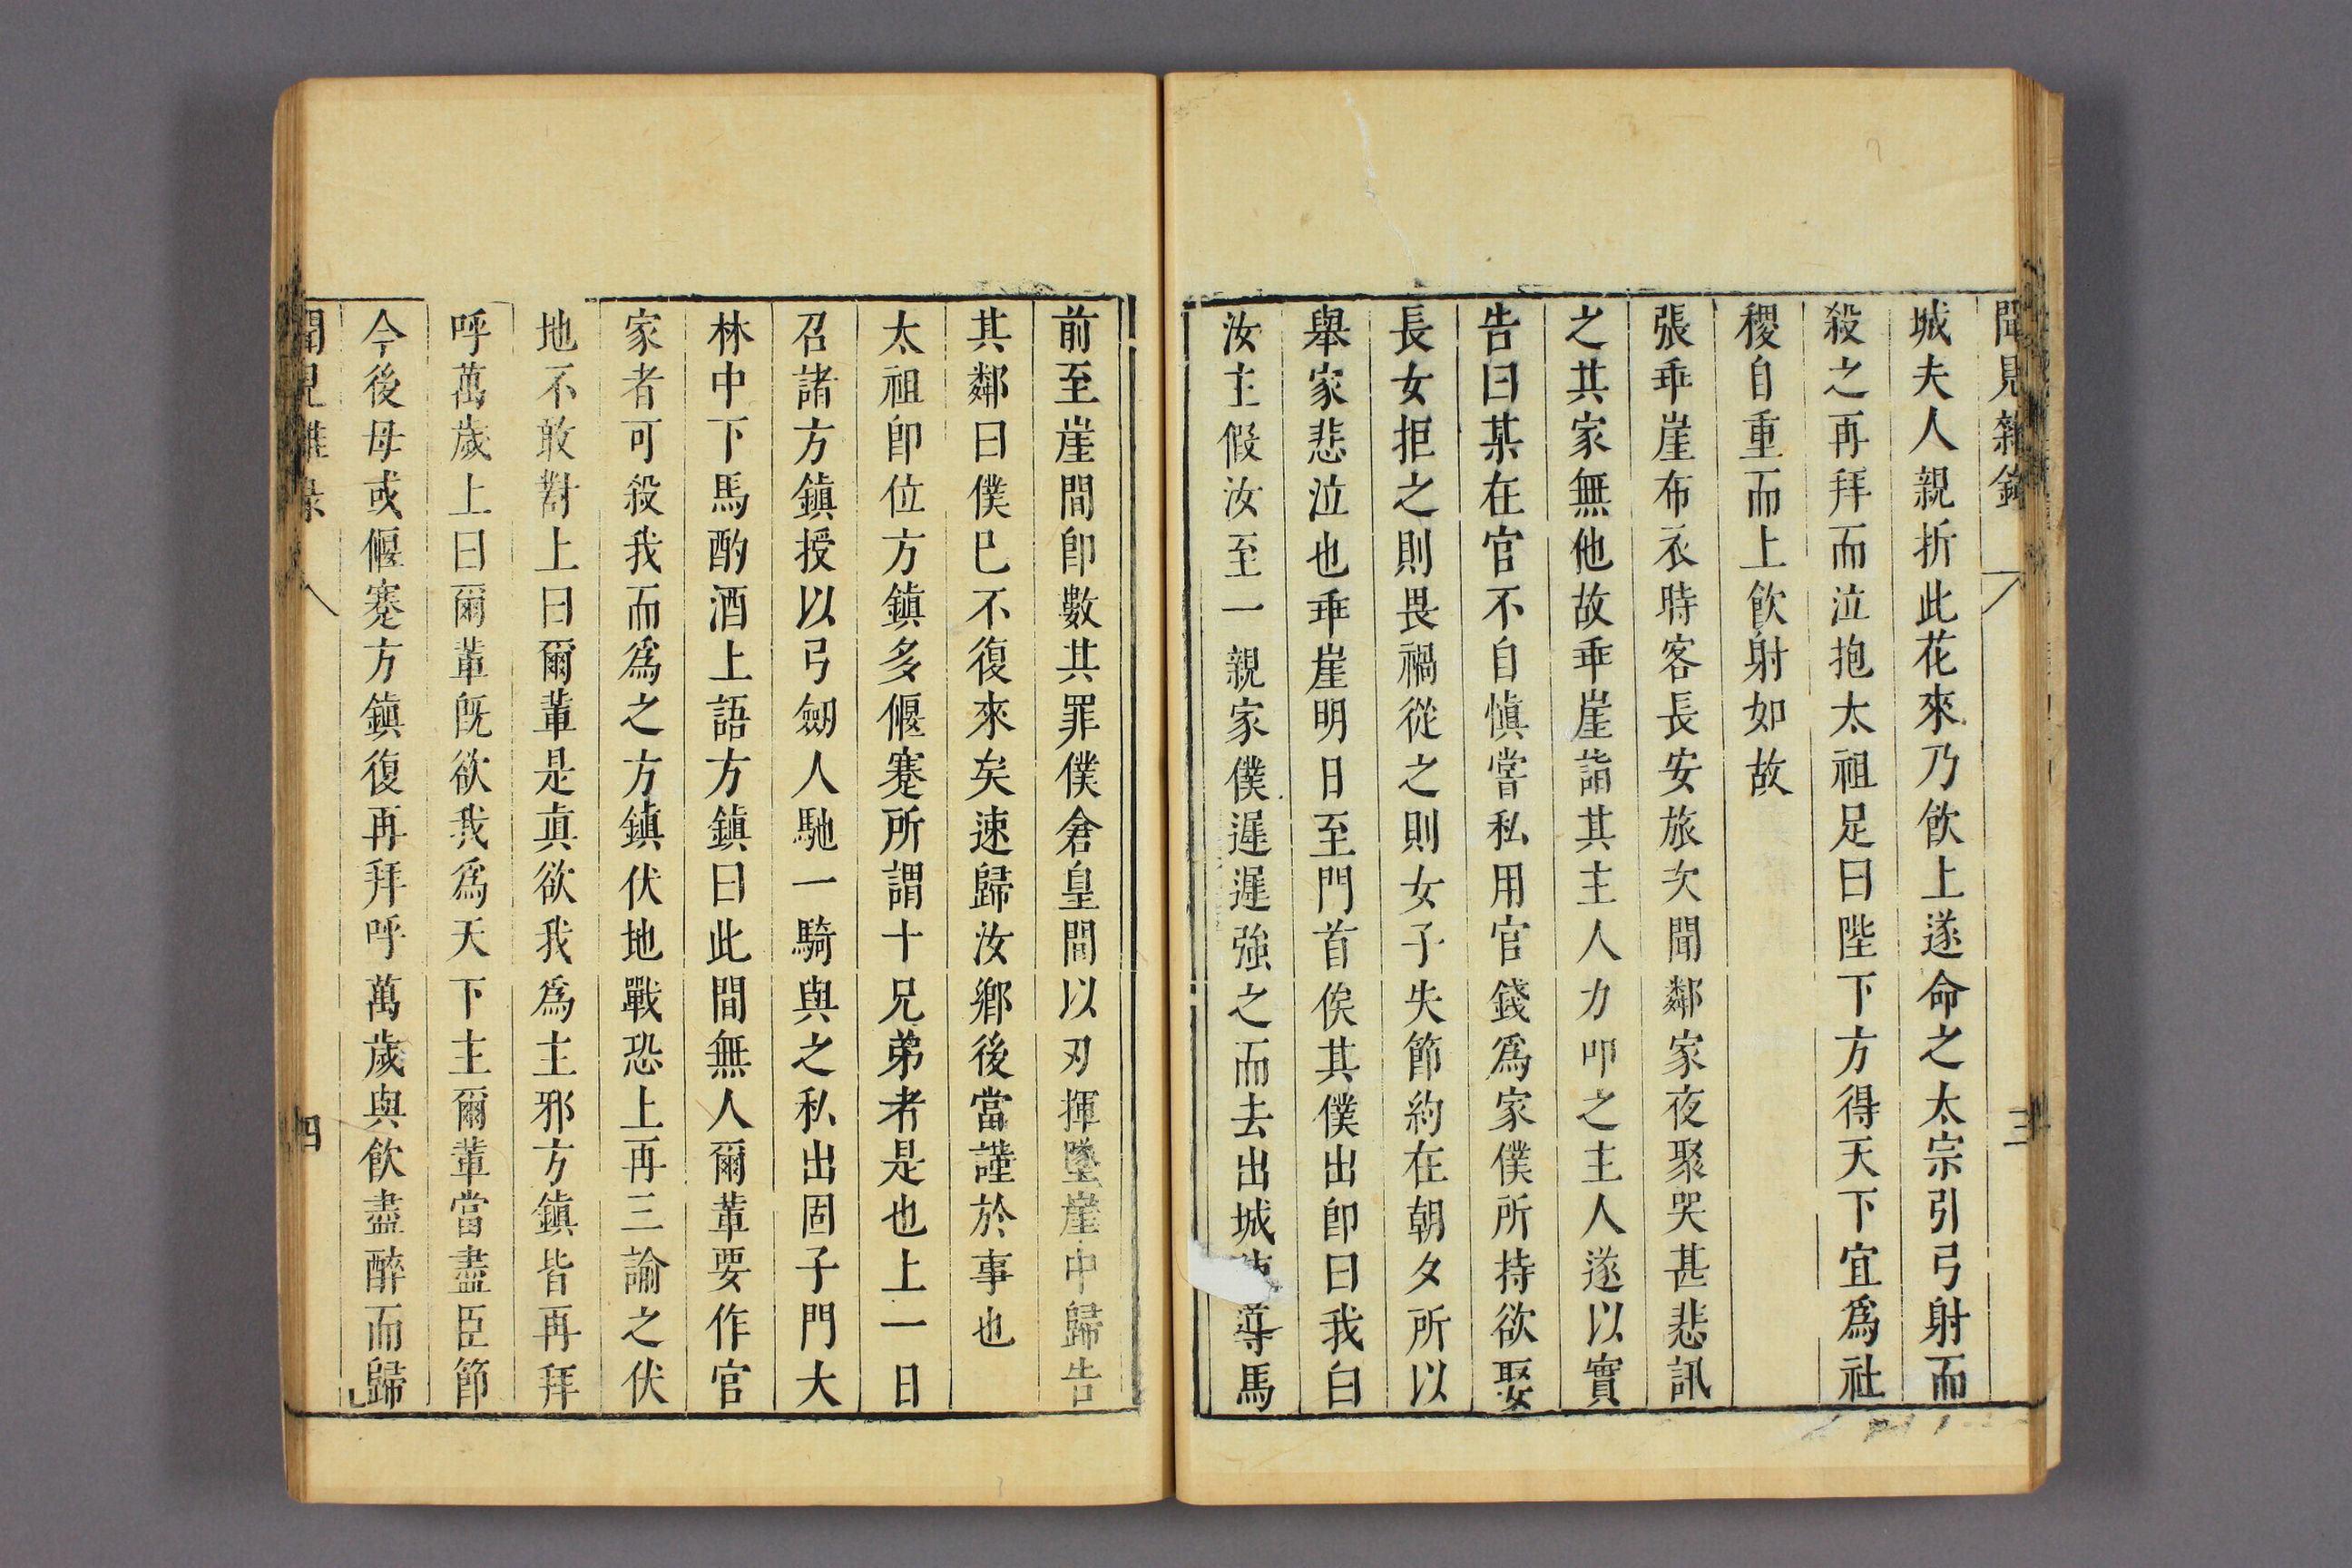 聞見雜錄
三
城夫人親折此花來乃飲上遂命之太宗引弓射而
殺之再拜而泣抱太祖足曰陛下方得天下宜爲社
稷自重而上飲射如故
張乖崖布衣時客長安旅次聞鄰家夜聚哭甚悲訊
之其家無他故乖崖詣其主人力叩之主人遂以實
告曰某在官不自愼嘗私用官錢爲家僕所持欲娶
長女拒之則畏禍從之則女子失節約在朝夕所以
舉家悲泣也乖崖明日至門首俟其僕出卽曰我白
汝主假汝至一親家僕遲遲強之而去出城導馬
前至崖間卽數其罪僕倉皇間以刃揮墜崖中歸告
其鄰曰僕已不復來矣速歸汝鄉後當謹於事也
太祖卽位方鎭多偃蹇所謂十兄弟者是也上一日
召諸方鎭授以弓劒人馳一騎與之私出固子門大
林中下馬酌酒上語方鎭曰此間無人爾輩要作官
家者可殺我而爲之方鎭伏地戰恐上再三諭之伏
地不敢對上曰爾輩是眞欲我爲主邪方鎭皆再拜
呼萬歲上曰爾輩旣欲我爲天下主爾輩當盡臣節
今後毋或偃蹇方鎭復再拜呼萬歲與飲盡醉而歸
聞見雜錄
四